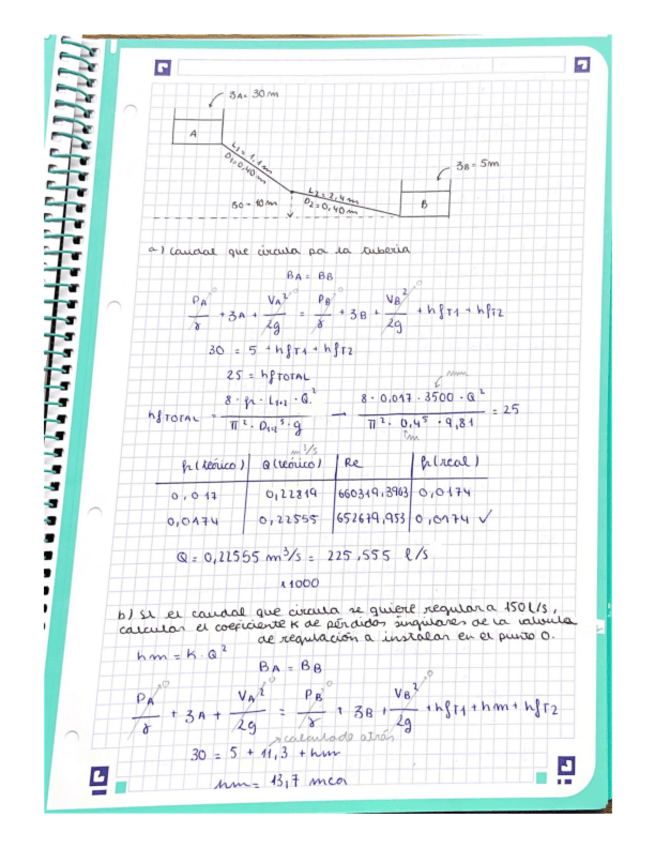 zA = 30 m
A
L1 = 1,1 m
D1 = 0,40 m
zB = 5 m
L2 = 2,4 m
D2 = 0,40 m
B
zo = 10 m
a) Caudal que circula por la tuberia
BA = BB
PA/γ + zA + VA²/2g = PB/γ + zB + VB²/2g + hfT1 + hfT2
30 = 5 + hfT1 + hfT2
25 = hfTOTAL
hfTOTAL = 8 · f · L1+2 · Q² / π² · D1+2⁵ · g → 8 · 0,017 · 3500 · Q² / π² · 0,4⁵ · 9,81 = 25
m³/s
f (teórico) Q (teórico) Re f (real)
0,017 0,22819 660319,3903 0,0174
0,0174 0,22555 652679,953 0,0174 ✓
Q = 0,22555 m³/s = 225,555 l/s
x1000
b) Si el caudal que circula se quiere regular a 150 l/s,
calcular el coeficiente K de pérdidas singulares de la valvula
de regulación a instalar en el punto O.
hm = K · Q²
BA = BB
PA/γ + zA + VA²/2g = PB/γ + zB + VB²/2g + hfT1 + hm + hfT2
calculado atrás
30 = 5 + 11,3 + hm
hm = 13,7 mca